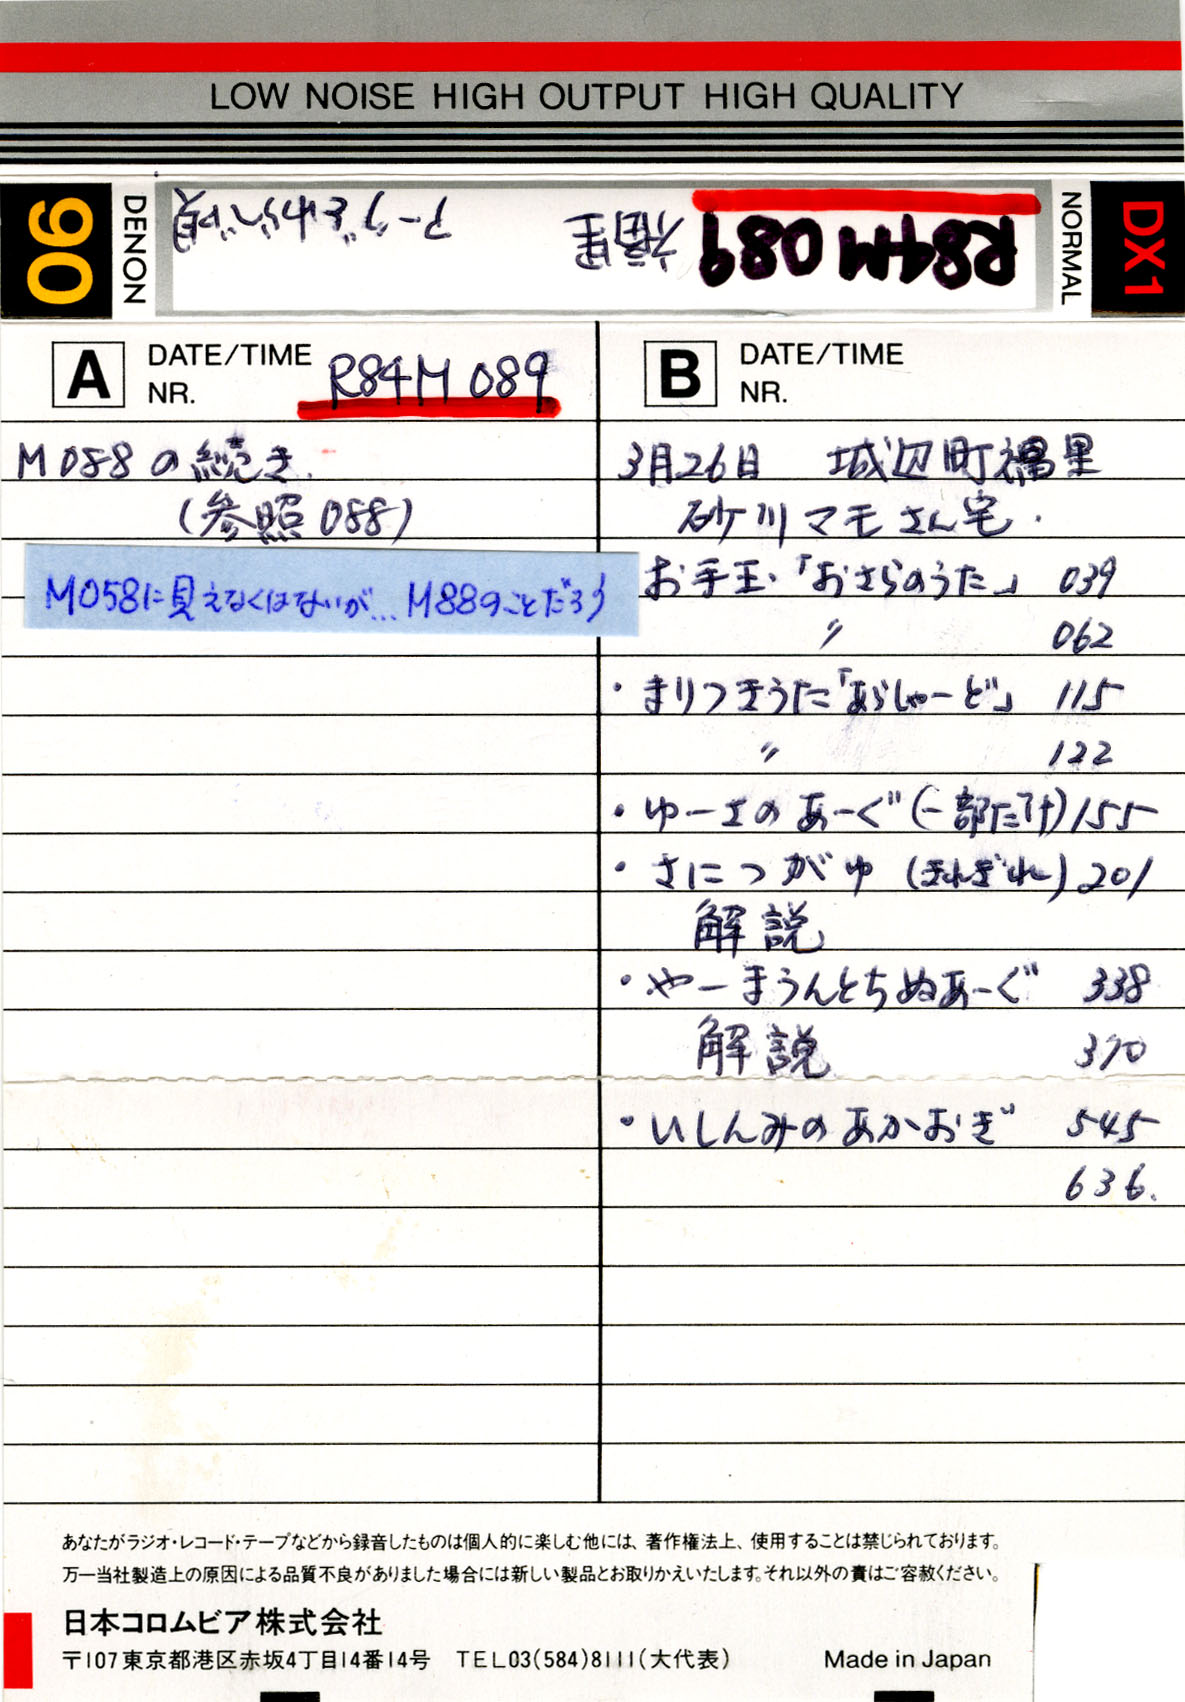 LOW NOISE HIGH OUTPUT HIGH QUALITY
90
DENON
R84M 089 福里
NORMAL
DX1
A DATE/TIME
NR.
R84M 089
M088の続き.
(参照088)
M058に見えなくはないが… M88のことだろう
B DATE/TIME
NR.
3月26日 城辺町福里
砂川マモさん宅.
お手玉・「おさらのうた」 039
〃 062
・まりつきうた「あらしゃーど」 115
〃 122
・ゆーさのあーぐ(一部だけ) 155
・さにつがゆ (きれぎれ) 201
解説
・やーまうんとちぬあーぐ 338
解説 370
・いしんみのあかおぎ 545
636.
あなたがラジオ・レコード・テープなどから録音したものは個人的に楽しむ他には、著作権法上、使用することは禁じられております。
万一当社製造上の原因による品質不良がありました場合には新しい製品とお取りかえいたします。それ以外の責はご容赦ください。
日本コロムビア株式会社
〒107東京都港区赤坂4丁目14番14号 TEL03(584)8111(大代表) Made in Japan